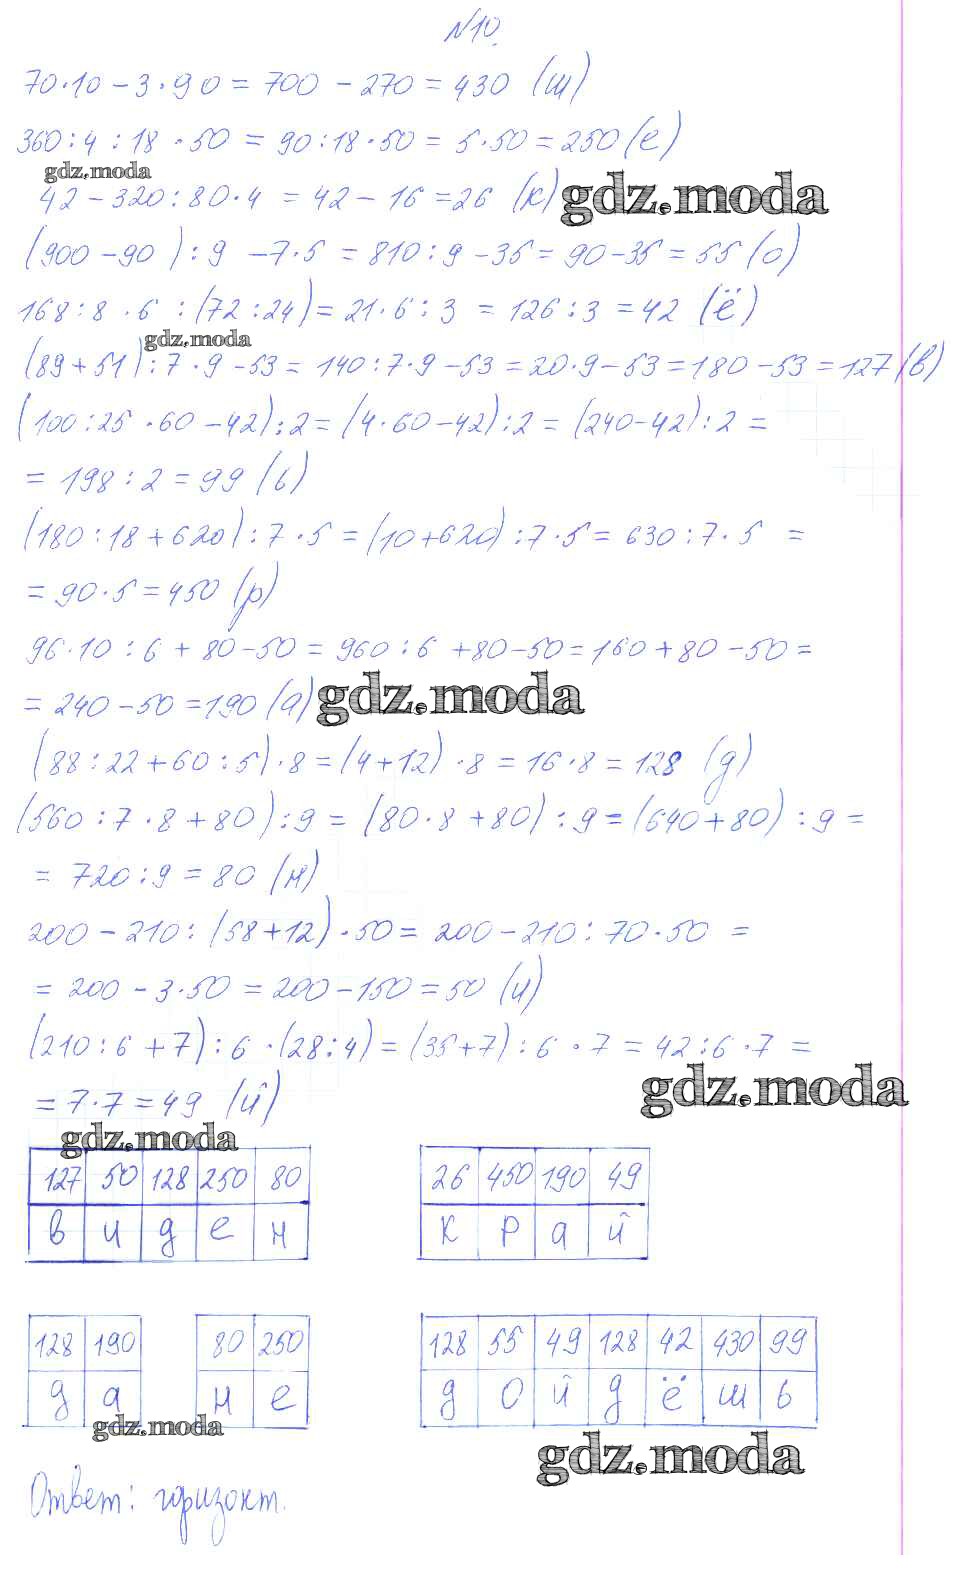 №10.
70·10 - 3·90 = 700 - 270 = 430 (ш)
360:4:18·50 = 90:18·50 = 5·50 = 250 (е)
gdz.moda
42 - 320:80·4 = 42 - 16 = 26 (к) gdz.moda
(900 - 90):9 - 7·5 = 810:9 - 35 = 90 - 35 = 55 (о)
168:8·6:(72:24) = 21·6:3 = 126:3 = 42 (ё)
gdz.moda
(89 + 51):7·9 - 53 = 140:7·9 - 53 = 20·9 - 53 = 180 - 53 = 127 (в)
(100:25·60 - 42):2 = (4·60 - 42):2 = (240 - 42):2 =
= 198:2 = 99 (ь)
(180:18 + 620):7·5 = (10 + 620):7·5 = 630:7·5 =
= 90·5 = 450 (р)
96·10:6 + 80 - 50 = 960:6 + 80 - 50 = 160 + 80 - 50 =
= 240 - 50 = 190 (а) gdz.moda
(88:22 + 60:5)·8 = (4 + 12)·8 = 16·8 = 128 (д)
(560:7·8 + 80):9 = (80·8 + 80):9 = (640 + 80):9 =
= 720:9 = 80 (н)
200 - 210:(58 + 12)·50 = 200 - 210:70·50 =
= 200 - 3·50 = 200 - 150 = 50 (и)
(210:6 + 7):6·(28:4) = (35 + 7):6·7 = 42:6·7 =
= 7·7 = 49 (й)
gdz.moda
gdz.moda
127 50 128 250 80 26 450 190 49
в и д е н к р а й
128 190 80 250 128 55 49 128 42 430 99
д а н е д о й д ё ш ь
gdz.moda
gdz.moda
Ответ: горизонт.